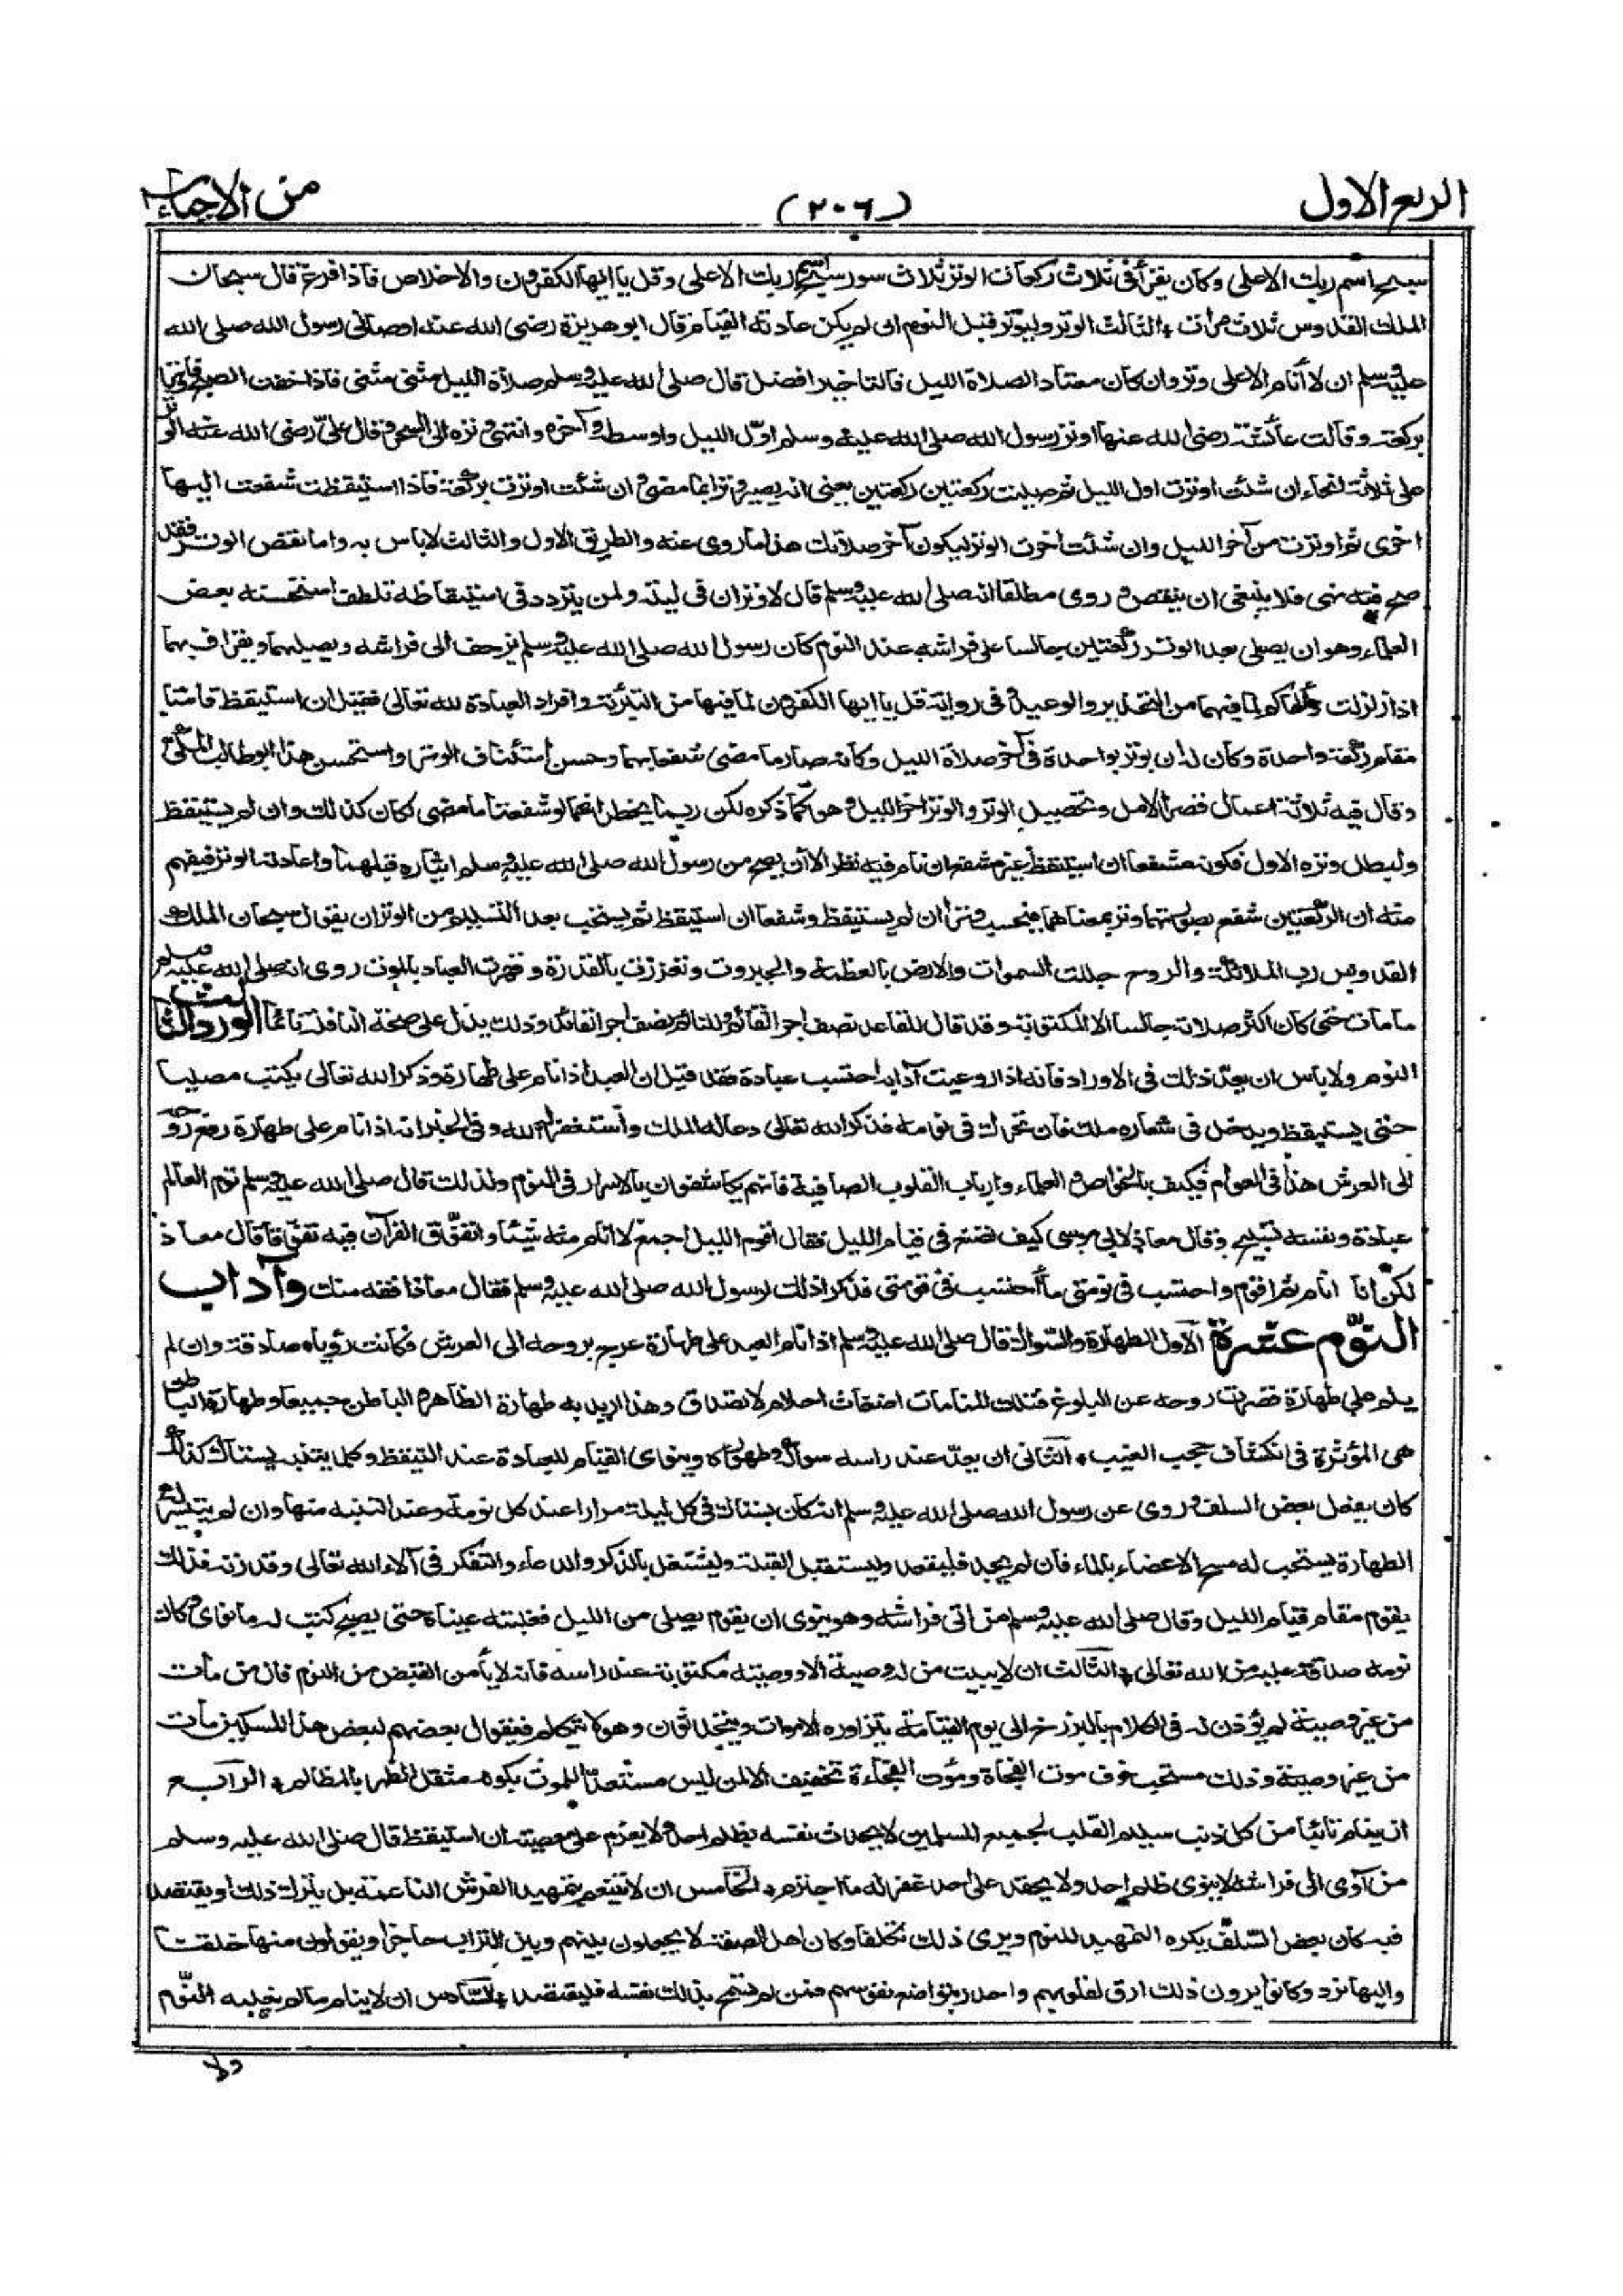 الربع الاول
(٢٠٦)
من الاحياء
سبح اسم ربك الاعلى وكان يقرأ فى ثلاث ركعات الوتر ثلاث سور سبح اسم ربك الاعلى وقل يا ايها الكفرون والاخلاص فاذا فرغ قال سبحان
الملك القدوس ثلاث مرات * الثالث الوتر وليوتر قبل النوم ان لم يكن عادته القيام قال ابو هريرة رضى الله عنه اوصانى رسول الله صلى الله
عليه وسلم ان لا أنام الاعلى وتر وان كان معتاد الصلاة الليل فالتاخير افضل قال صلى الله عليه وسلم صلاة الليل مثنى مثنى فاذا خفت الصبح فاوتر
بركعة وقالت عائشة رضى الله عنها اوتر رسول الله صلى الله عليه وسلم اوّل الليل واوسطه وآخره وانتهى وتره الى السحر وقال علىّ رضى الله عنه الوتر
على ثلاثة انحاء ان شئت اوترت اول الليل ثم صليت ركعتين ركعتين يعنى انه يصير وترا بما مضى وان شئت اوترت بركعة فاذا استيقظت شفعت اليها
اخرى ثم اوترت من آخر الليل وان شئت اخرت الوتر ليكون آخر صلاتك هذا ما روى عنه والطريق الاول والثالث لاباس به واما نقض الوتر فقد
صح فيه نهى فلا ينبغى ان ينقض وروى مطلقا انه صلى الله عليه وسلم قال لا وتران فى ليلة ولمن يتردد فى استيقاظه تلطف استحسنه بعض
العلماء وهو ان يصلى بعد الوتر ركعتين جالسا على فراشه عند النوم كان رسول الله صلى الله عليه وسلم يزحف الى فراشه ويصليهما ويقرأ فيهما
اذا زلزلت وألهاكم لما فيهما من التحذير والوعيد وفى رواية قل يا ايها الكفرون لما فيها من التبرئة وافراد العبادة لله تعالى فقيل ان استيقظ قامتا
مقام ركعة واحدة وكان له ان يوتر بواحدة فى آخر صلاة الليل وكانه صار ما مضى شفعا بهما وحسن استئناف الوتر واستحسن هذا ابو طالب المكى
وقال فيه ثلاثة اعمال قصر الامل وتحصيل الوتر والوتر اخر الليل وهو كما ذكره لكن ربما يخطر انهما لو شفعتا ما مضى لكان كذلك وان لم يستيقظ
وليبطل وتره الاول فكونه مشفعا ان استيقظ غير مشفع ان نام فيه نظر الا ان يصح من رسول الله صلى الله عليه وسلم ايتاره قبلهما واعادته الوتر فيفهم
منه ان الركعتين شفع بصورتهما وتر بمعناهما فيحسب وترا ان لم يستيقظ وشفعا ان استيقظ ثم يستحب بعد التسليم من الوتر ان يقول سبحان الملك
القدوس رب الملائكة والروح جللت السموات والارض بالعظمة والجبروت وتعززت بالقدرة وقهرت العباد بالموت روى انه صلى الله عليه وسلم
ما مات حتى كان اكثر صلاته جالسا الا المكتوبة وقد قال للقاعد نصف اجر القائم وللنائم نصف اجر القاعد وذلك يدل على صحة النافلة نائما الورد الثالث
النوم ولا باس ان يعدّ ذلك فى الاوراد فانه اذا روعيت آدابه احتسب عبادة فقد قيل ان العبد اذا نام على طهارة وذكر الله تعالى يكتب مصليا
حتى يستيقظ ويدخل فى شعاره ملك فان تحرك فى نومه فذكر الله تعالى دعا له الملك واستغفر له الله وفى الخبر انه اذا نام على طهارة رفع روحه
الى العرش هذا فى العوام فكيف بالخواص والعلماء وارباب القلوب الصافية فانهم يكاشفون بالاسرار فى النوم ولذلك قال صلى الله عليه وسلم نوم العالم
عبادة ونفسه تسبيح وقال معاذ لابى موسى كيف تصنع فى قيام الليل فقال اقوم الليل اجمع لا انام منه شيئا واتفوّق القرآن فيه تفوّقا قال معاذ
لكن انا انام ثم اقوم واحتسب فى نومتى ما أحتسب فى قومتى فذكرا ذلك لرسول الله صلى الله عليه وسلم فقال معاذ افقه منك وآداب
النوم عشرة الاول الطهارة والسواك قال صلى الله عليه وسلم اذا نام العبد على طهارة عرج بروحه الى العرش فكانت رؤياه صادقة وان لم
ينم على طهارة قصرت روحه عن البلوغ فتلك المنامات اضغاث احلام لا تصدق وهذا اريد به طهارة الظاهر والباطن جميعا وطهارة الباطن
هى المؤثرة فى انكشاف حجب الغيب * الثانى ان يعدّ عند راسه سواكه وطهوره وينوى القيام للعبادة عند التيقظ وكلما يتنبه يستاك كذلك
كان يفعل بعض السلف وروى عن رسول الله صلى الله عليه وسلم انه كان يستاك فى كل ليلة مرارا عند كل نومة وعند التنبه منها وان لم يتيسر له
الطهارة يستحب له مسح الاعضاء بالماء فان لم يجد فليقعد وليستقبل القبلة وليشتغل بالذكر والدعاء والتفكر فى آلاء الله تعالى وقدرته فذلك
يقوم مقام قيام الليل وقال صلى الله عليه وسلم من اتى فراشه وهو ينوى ان يقوم يصلى من الليل فغلبته عيناه حتى يصبح كتب له ما نوى وكان
نومه صدقة عليه من الله تعالى * الثالث ان لا يبيت من له وصية الا ووصيته مكتوبة عند راسه فانه لا يأمن القبض من النوم فان من مات
من غير وصية لم يؤذن له فى الكلام بالبرزخ الى يوم القيامة يتزاوره الاموات ويتحدثون وهو لا يتكلم فيقول بعضهم لبعض هذا المسكين مات
من غير وصية وذلك مستحب خوف موت الفجأة وموت الفجاءة تخفيف الا لمن ليس مستعدّا للموت بكونه مثقل الظهر بالمظالم * الرابع
ان ينام تائبا من كل ذنب سليم القلب لجميع المسلمين لا يحدث نفسه بظلم احد ولا يعزم على معصية ان استيقظ قال صلى الله عليه وسلم
من آوى الى فراشه لا ينوى ظلم احد ولا يحقد على احد غفر له ما اجترم * الخامس ان لا يتنعم بتمهيد الفرش الناعمة بل يترك ذلك او يقتصد
فيه كان بعض السلف يكره التمهيد للنوم ويرى ذلك تكلفا وكان اهل الصفة لا يجعلون بينهم وبين التراب حاجزا ويقولون منها خلقنا
واليها نرد وكانوا يرون ذلك ارق لقلوبهم واجدر بتواضع نفوسهم فمن لم تسمح بذلك نفسه فليقتصد * السادس ان لا ينام ما لم يغلبه النوم
ولا